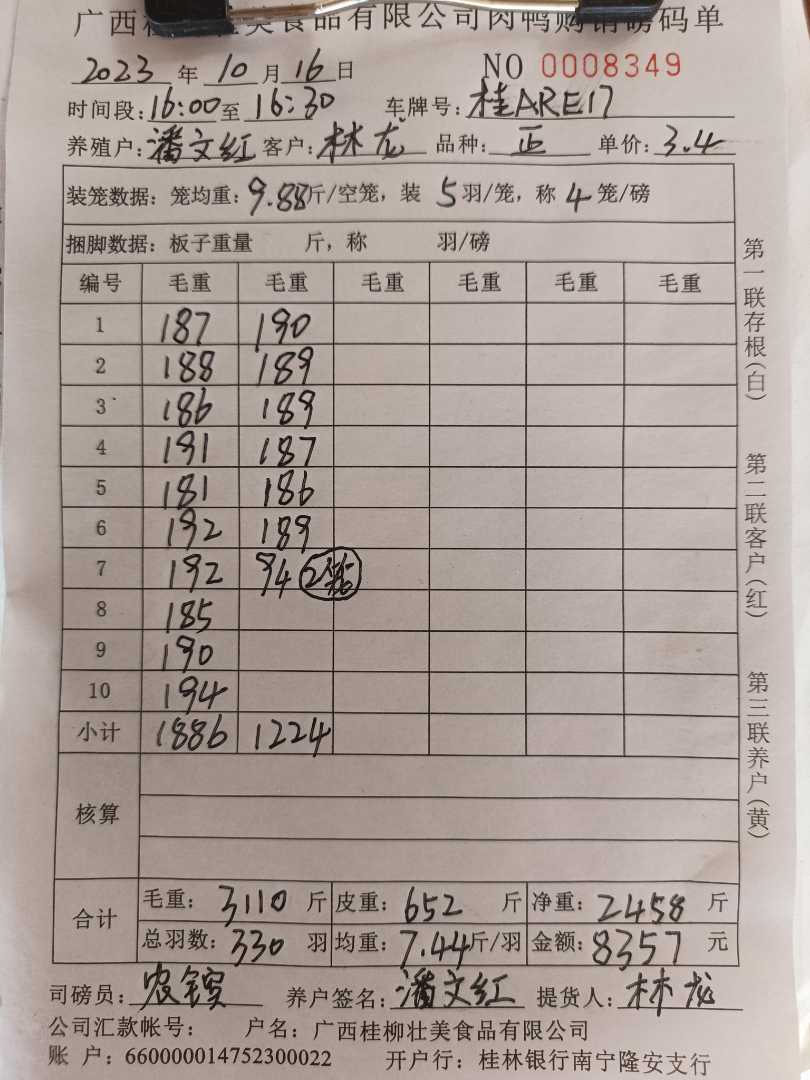 广西 美食品有限公司肉鸭购销磅码单
2023 年 10 月 16 日 NO 0008349
时间段: 16:00 至 16:30 车牌号: 桂ARE17
养殖户: 潘文红 客户: 林龙 品种: 正 单价: 3.4
装笼数据: 笼均重: 9.88斤/空笼, 装 5 羽/笼, 称 4 笼/磅
捆脚数据: 板子重量 斤, 称 羽/磅
编号 毛重 毛重 毛重 毛重 毛重 毛重
1 187 190
2 188 189
3 186 189
4 191 187
5 181 186
6 192 189
7 192 94 2笼
8 185
9 190
10 194
小计 1886 1224
核算
合计
毛重: 3110 斤 皮重: 652 斤 净重: 2458 斤
总羽数: 330 羽 均重: 7.44斤/羽 金额: 8357 元
司磅员: 养户签名: 潘文红 提货人: 林龙
公司汇款帐号: 户名: 广西桂柳壮美食品有限公司
账 户: 660000014752300022 开户行: 桂林银行南宁隆安支行
第一联存根(白)
第二联客户(红)
第三联养户(黄)